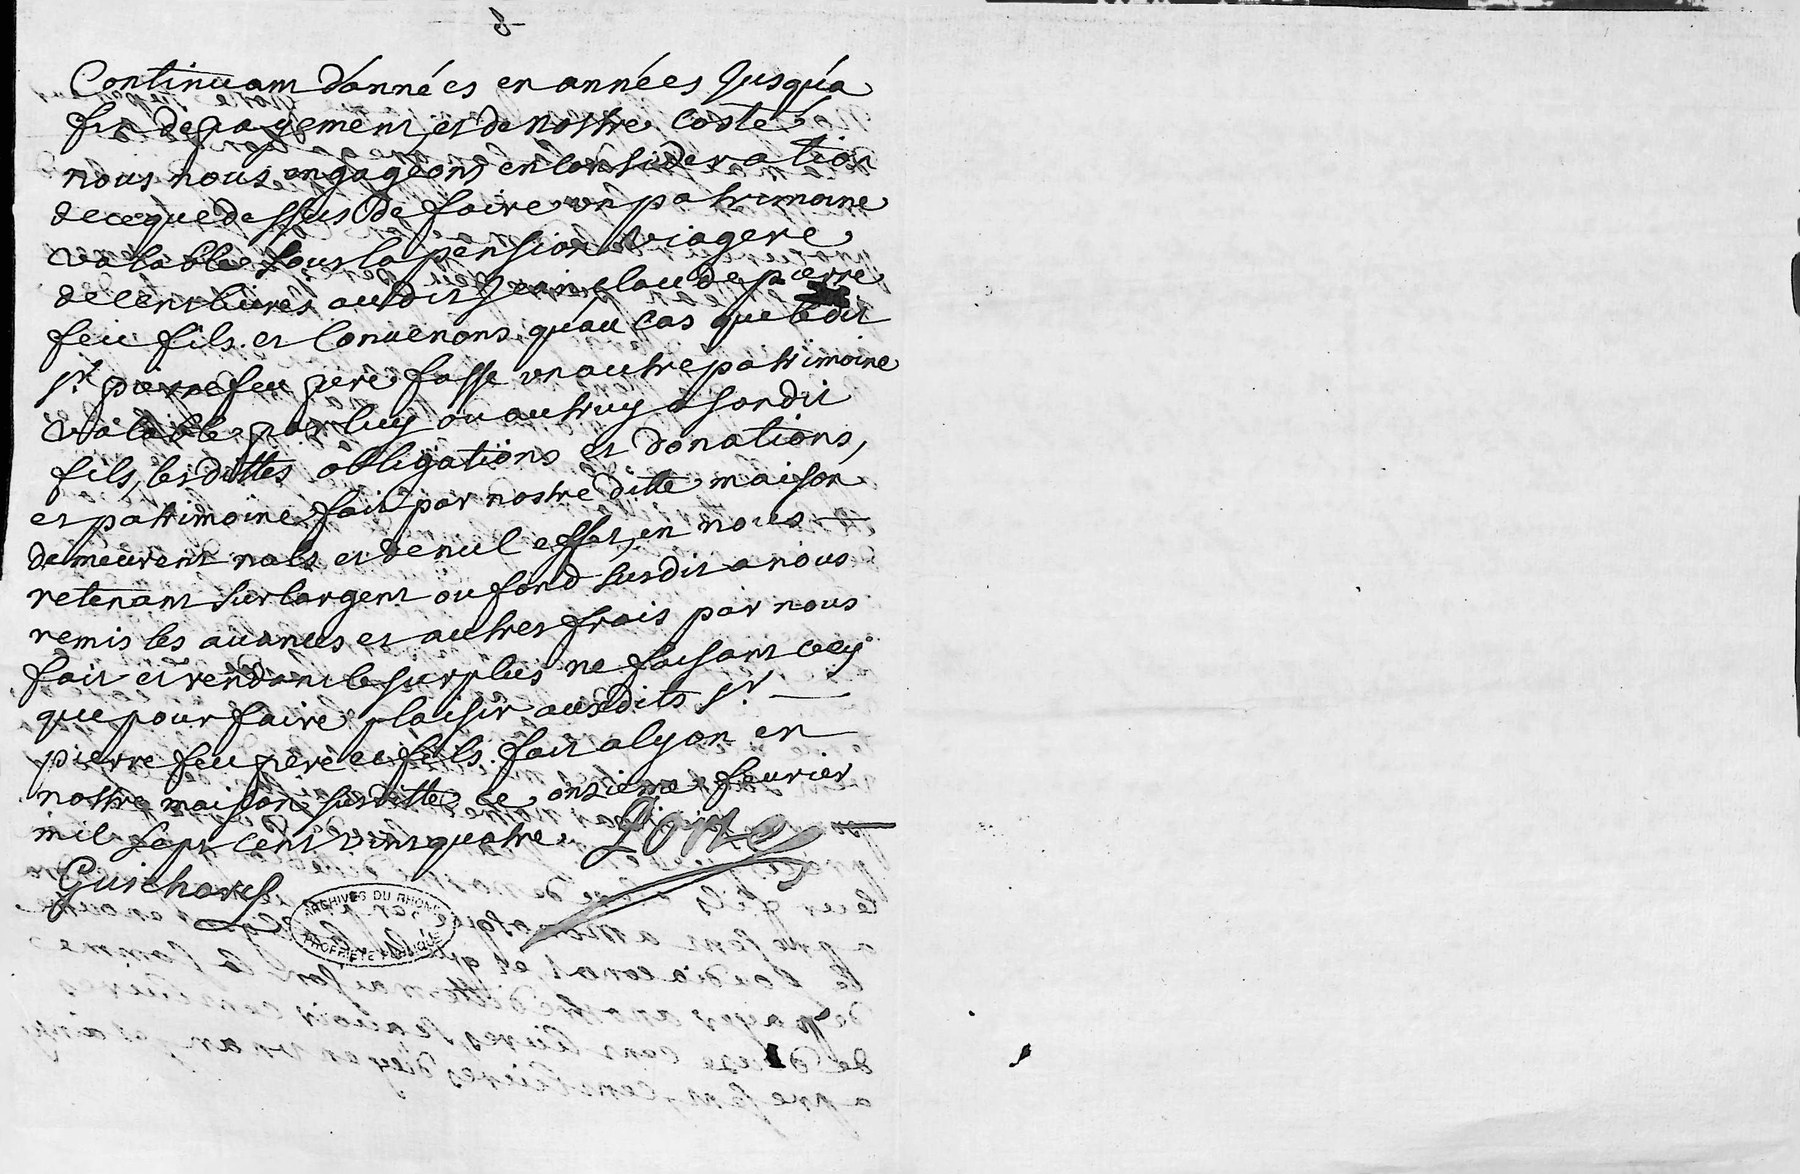 8
Continuam d'années en années Jusqu'a
fin de payement, et de nostre costé
nous nous engageons en consideration
de ce que dessus de faire un patrimoine
valable sous la pension viagere
de cent livres audit Jean claude pierre
feu fils. et Convenons qu'au cas que ledit
sr. pierre feu pere fasse un autre patrimoine
valable par luy ou autruy a sondit
fils, lesdittes obligations et donations,
et patrimoine fait par nostre ditte maison
demeurent nuls et de nul effet, en nous
retenant sur l'argent ou fond susdit a nous
remis les avances et autres frais par nous
fait et rendant le surplus ne faisant cecy
que pour faire plaisir auxdits sr.
pierre feu pere et fils. fait a lyon en
nostre maison susditte ce onzieme fevrier
mil sept cent vint quatre.
ARCHIVES DU RHONE
PROPRIETE PUBLIQUE